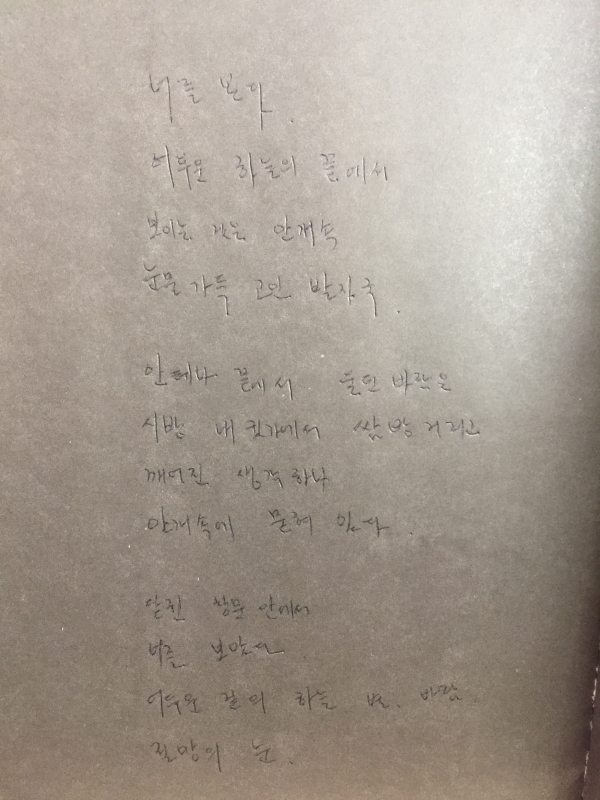 너를 본다.
어두운 하늘의 끝에서
보이는 것은 안개속
눈물 가득 고인 발자국.
안테나 끝에서 울던 바람은
시방 내 귓가에서 쌂방거리고
깨어진 생각 하나
안개속에 묻혀 있다.
닫힌 창문 안에서
너를 보았다
어두운 길의 하늘 별. 바람
절망의 눈.